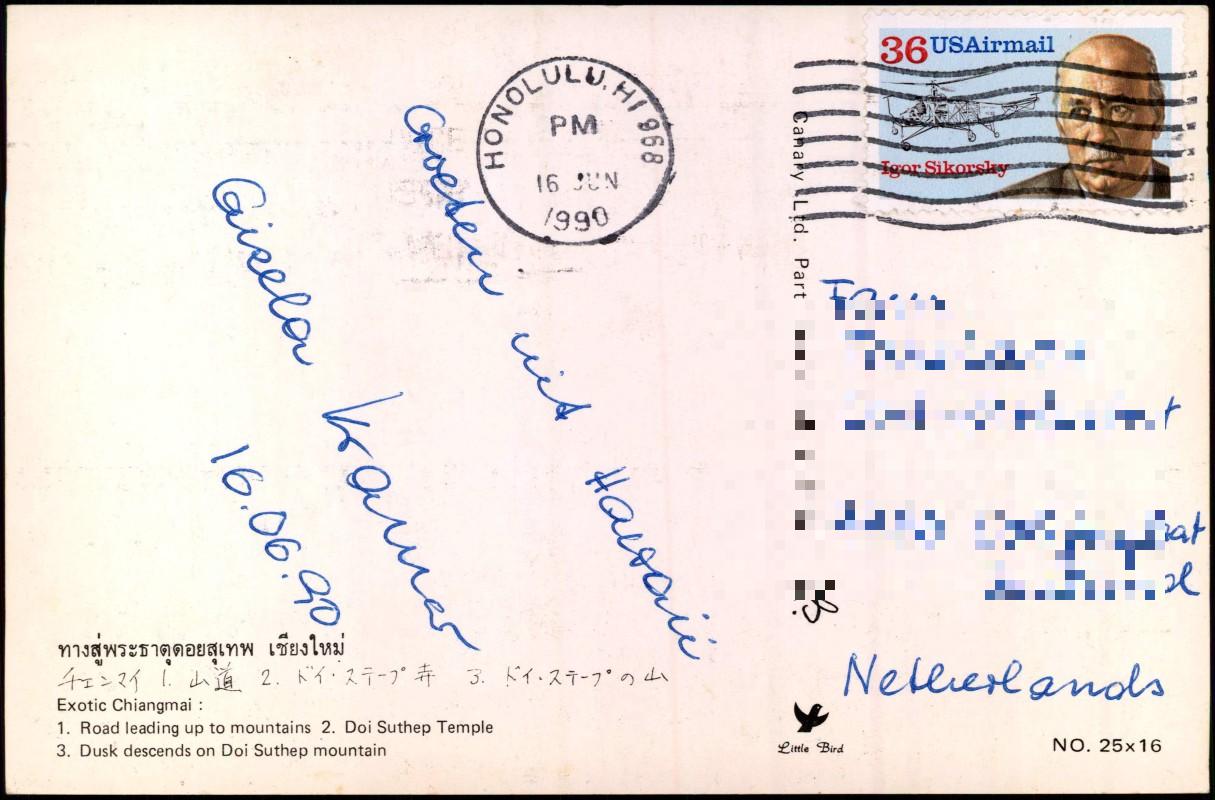 36 USAirmail
Igor Sikorsky
HONOLULU, HI 968
PM
16 JUN
1990
Groeten uit Hawaii
Giselar Kramer
16.06.90
Canary Ltd. Part
Netherlands
ทางสู่พระธาตุดอยสุเทพ เชียงใหม่
チェンマイ 1. 山道 2. ドイ・ステープ寺 3. ドイ・ステープの山
Exotic Chiangmai :
1. Road leading up to mountains 2. Doi Suthep Temple
3. Dusk descends on Doi Suthep mountain
Little Bird
NO. 25x16